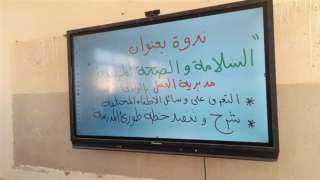 ندوة بعنوان
"السلامة والصحة المهنية"
مديرية العمل بالوادى
* التعرف على وسائل الأطفاء المختلفة
* شرح وتنفيذ خطة طوارئ المدرسة